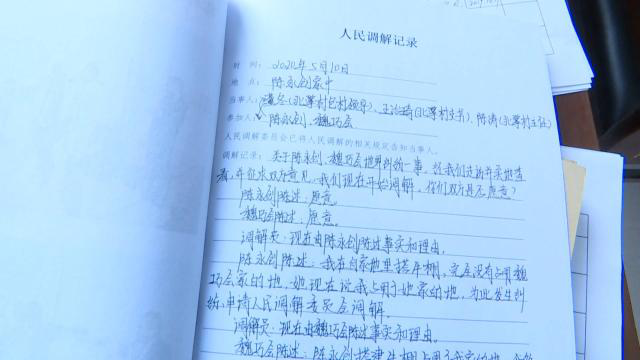 人民调解记录
时 间：2024年5月10日
地 点：陈永创家中
当事人：冬（北潭村包村领导）、王治琦（北潭村支书）、陈涛（北潭村主任）
参加人：陈永创、魏巧层
人民调解委员会已将人民调解的相关规定告知当事人。
调解记录：关于陈永创、魏巧层地界纠纷一事，经我们过前来实地查
看，并征求双方意见，我们现在开始调解，你们双方是否愿意？
陈永创陈述：愿意。
魏巧层陈述：愿意。
调解员：现在由陈永创陈述事实和理由。
陈永创陈述：我在自家地里搭车棚，完全没有占用魏
巧层家的地，她现在说我占用了她家的地，为此发生纠
纷，申请人民调解委员会调解。
调解员：现在由魏巧层陈述事实和理由。
魏巧层陈述：陈永创搭建车棚占用了我家的地